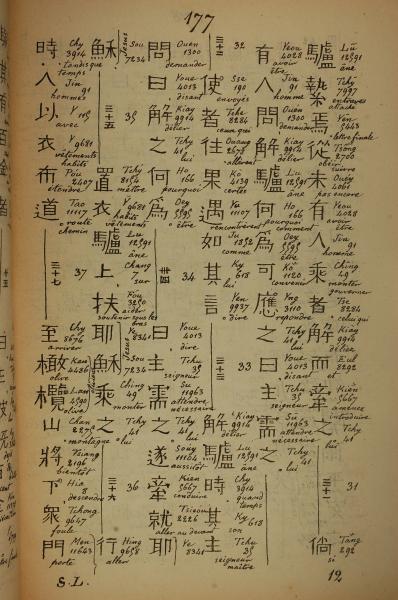 177
驢縶焉從未有人乘者解而牽之三十一倘
Lü 12591 âne
Tchy 7997 entraves attaché
Yen 5443 lettre finale
Tsong 2700 obéir suivre
Ouey 4061 pas encore
Yeou 4028 avoir être
Jin 91 homme
Ching 49 monter gouverner
Tse 8284 celui qui
Kiay 9914 délier
Eul 8292 et
Kien 5667 amener introduire
Tchy 41 lui
31
Tang 292 si
有人問解驢何為可應之曰主需之
Yeou 4028 avoir être
Jin 91 homme
Ouen 1300 demander
Kiay 9914 délier
Lu 12591 âne
Ho 166 pourquoi comment
Oey 5595 être
Ko 1120 convenir
Yng 3110 repondre
Tchy 41 lui
Youe 4013 disant
Tchu 35 seigneur
Su 11963 attendre nécessaire
Tchy 41 lui
三十二使者往果遇如其言三十三解驢時其主
32
Sse 190 envoyés
Tche 8284 ceux qui
Ouang 2677 allèrent
Ko 4139 certes
Yu 11107 rencontrèrent
Ju 1852 comme
Ky 618 lui
Yen 9937 dire
33
Kiay 9914 délier
Lu 12591 âne
Chy 3914 quand temps
Ky 618 son
Tchu 35 seigneur maître
問曰解之何為三十四曰主需之遂牽就耶
Ouen 1300 demander
Youe 4013 disant
Kiay 9914 délier
Tchy 41 lui
Ho 166 pourquoi
Oey 5595 être
34
Youe 4013 dire
Tchu 35 seigneur
Su 11963 attendre nécessaire
Tchy 41 lui
Souy 11164 aussitôt
Kien 5667 conduire
Tsieou 2226 aller au devant
Ye 8341
穌三十五置衣驢上扶耶穌乘之三十六行
Jésus
Sou 7234
35
Tchy 8154 mettre
Y 9681 habits vêtements
Lu 12591 âne
Chang 7 sur
Fou 3250 aider soutenir sous les bras
Ye 8341
Jésus
Sou 7234
Ching 49 monter
Tchy 41 lui
36
Hing 9658 aller
時人以衣布道三十七至橄欖山將下眾門
Chy 3914 tandisque temps
Jin 91 hommes
Y 115 avec
Y 9681 vêtements habits
Pou 2407 étendre
Tao 11117 route chemin
37
Chy 8676 arriver
Kan 4486 olive
Lan 4591 olive
Chan 2275 montagne
Tsiang 2196 bientôt
Hia 8 descendre
Tchong 9647 foule
Men 11643 porte
S.L.
12